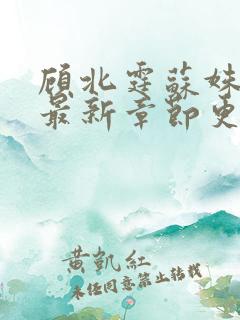 顾北霆蘇妹
最新章節更
黄凯紅
未经同意禁止转载